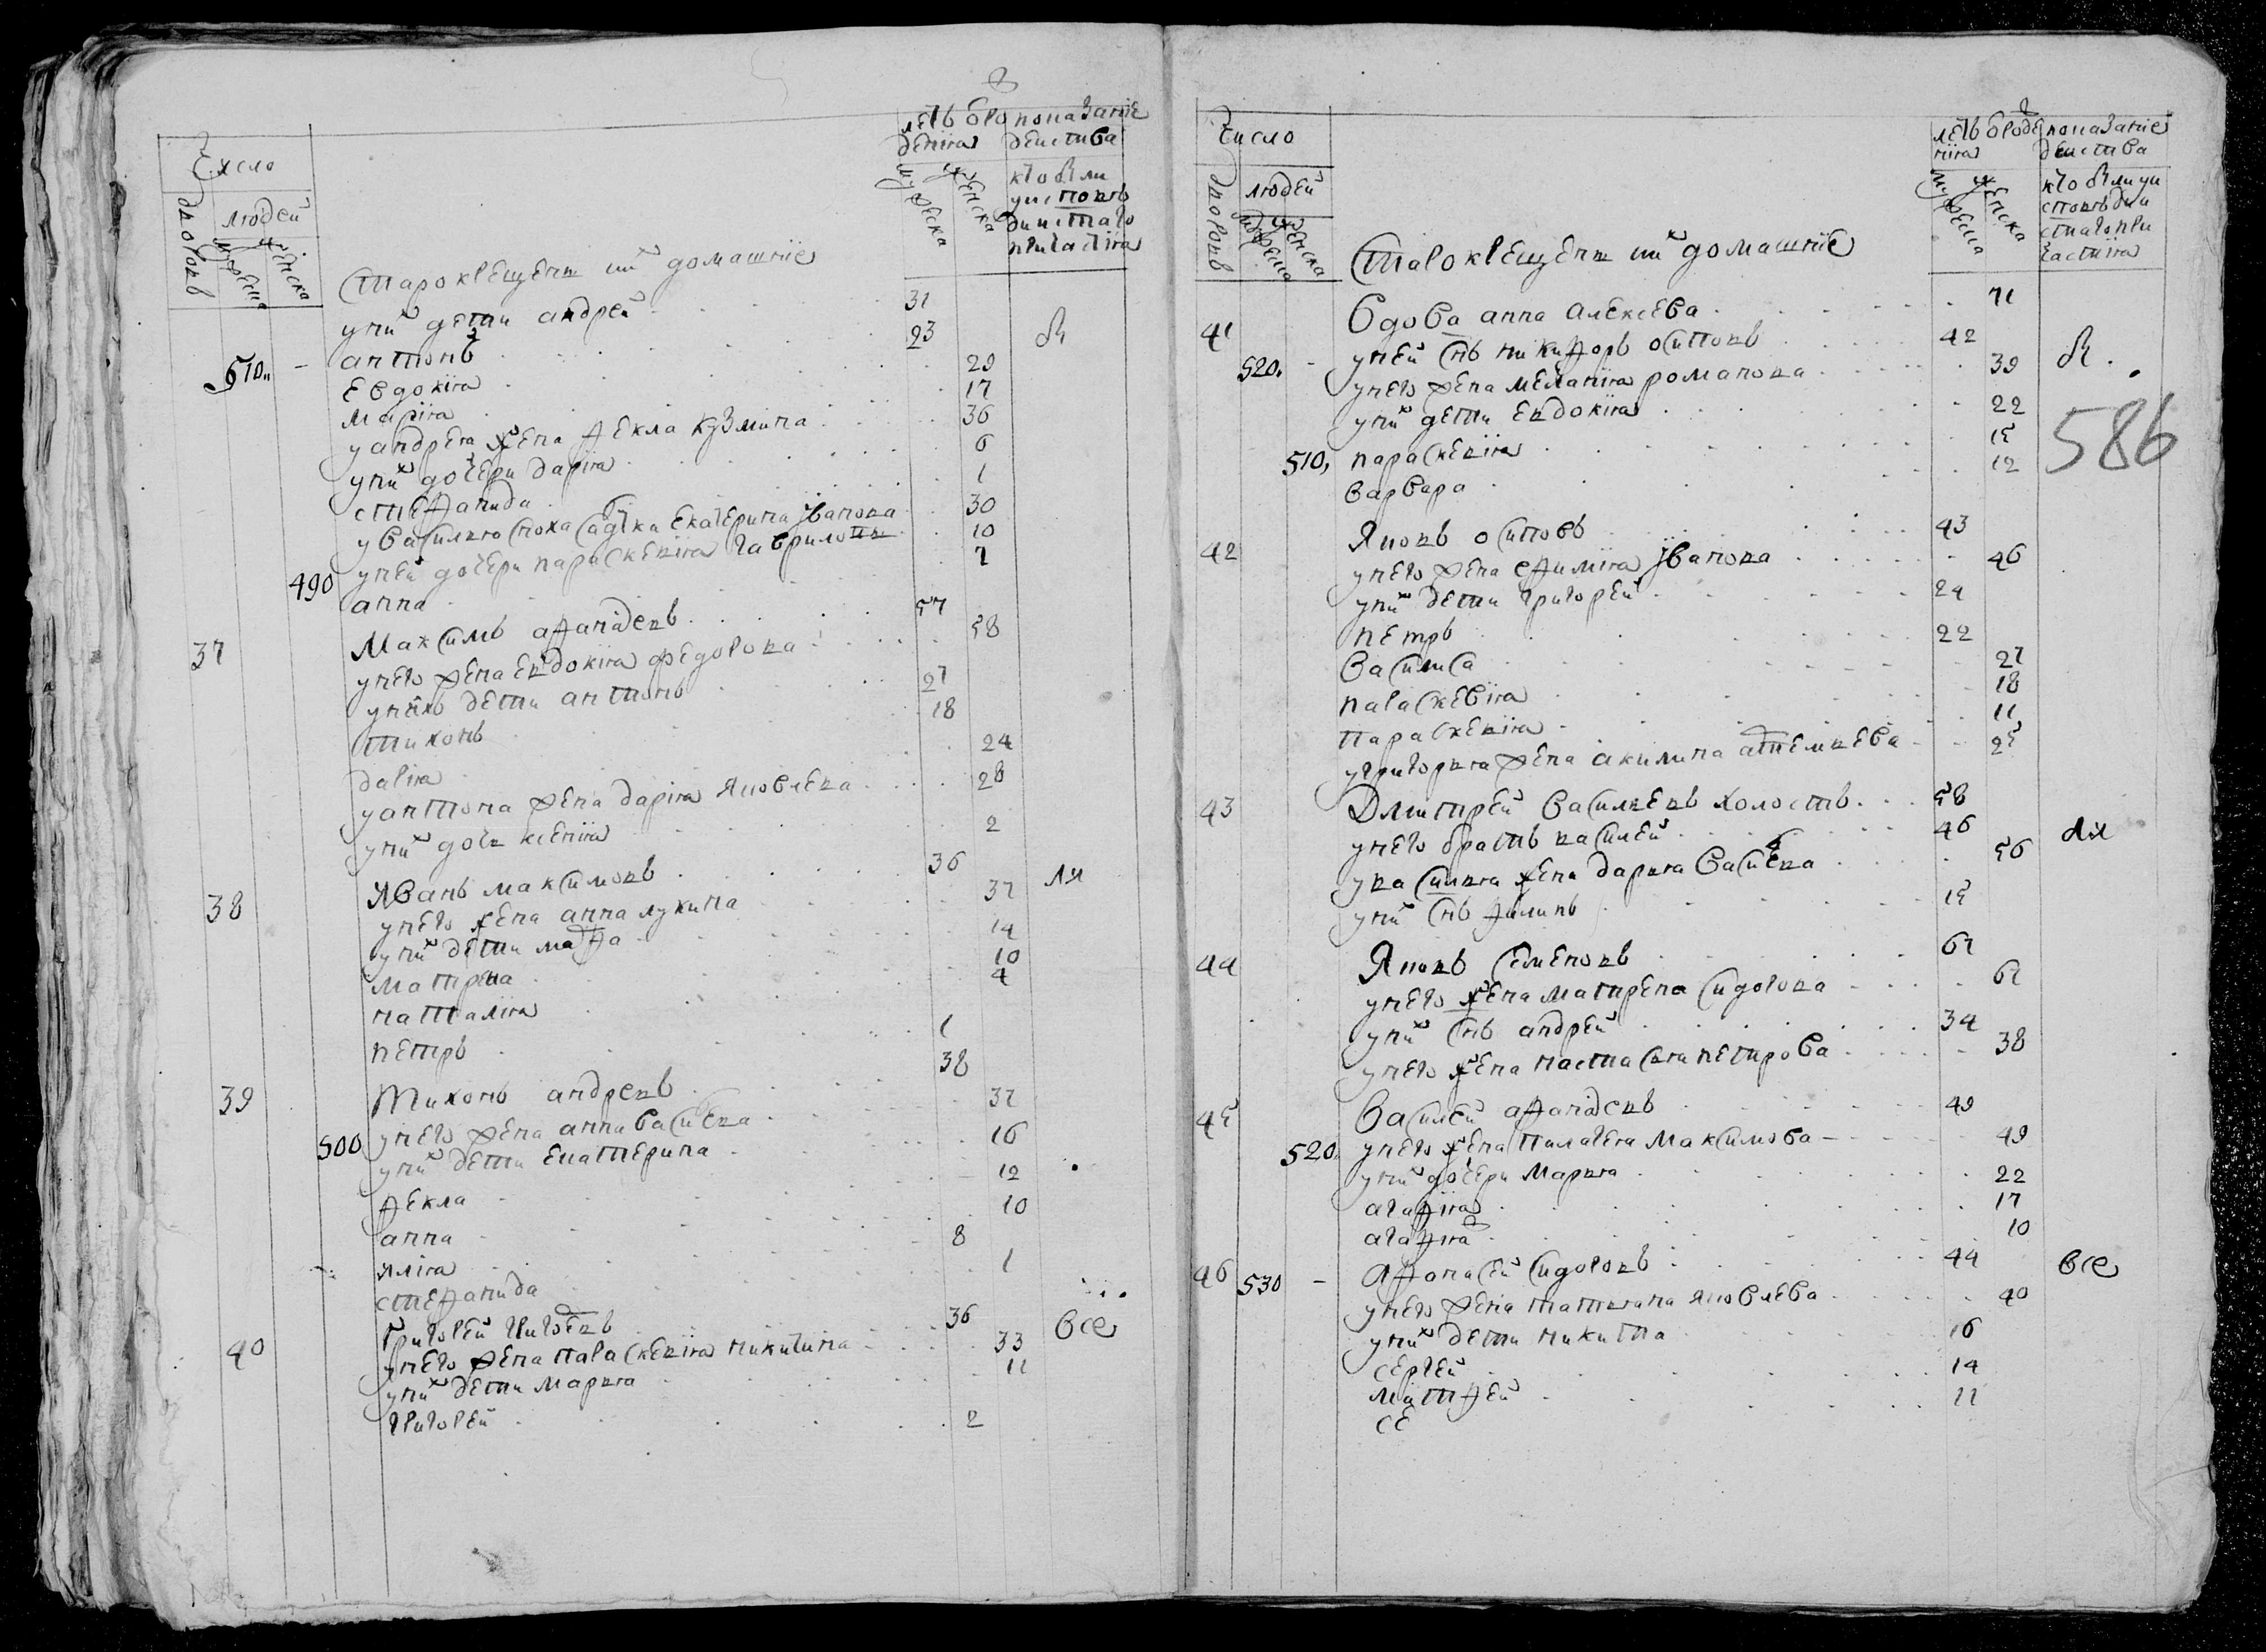 Число
дворовъ
людей
мужеска
женска
летъ от рождения
мужеска
женска
показание действа
кто были у исповеди и святаго причастия
Старокрещены и их домашние
у них дети андрей 31
510 антонъ 23 бы
евдокия 29
мария 17
у андрея жена фекла кузмина 36
у них дочери дария 6
стефанида 1
у василья сноха салдатка екатерина иванова 30
у ней дочери параскевия гавриловы 10
490 анна 7
37 Максимъ афанасевъ 57
у него жена евдокия федорова 58
у нихъ дети антонъ 27
тихонъ 18
дария 24
у антона жена дария яковлева 28
у них дочь ксения 2
38 Иванъ максимовъ 36 ли
у него жена анна лукина 37
у них дети марфа 14
матрена 10
наталия 4
петръ 1
39 Тихонъ андреевъ 38
у него жена анна васильева 37
500 у них дети екатерина 16
фекла 12
анна 10
илия 8
стефанида 1
40 Григорей григорьевъ 36 все
у него жена параскевия никитина 33
у них дети марья 11
григорей 2
Число
дворовъ
людей
мужеска
женска
летъ от рождения
мужеска
женска
показание действа
кто были у исповеди и святаго причастия
Старокрещены и их домашние
41 Вдова анна алексеева 71
520 у ней сынъ никифоръ осиповъ 42 бы
у него жена мелания романова 39
у них дети евдокия 22
586
510 параскевия 15
варвара 12
42 Яковъ осиповъ 43
у него жена ефимия иванова 46
у них дети григорей 24
петръ 22
василиса 27
параскевия 18
параскевия 11
у григорья жена акилина артемьева 25
43 Дмитрей васильевъ холостъ 58
у него братъ василей 46 ли
у василья жена дарья васильева 56
у них сынъ филипъ 15
44 Яковъ семеновъ 67
у него жена матрена сидорова 67
у них сынъ андрей 34
у него жена настасья петрова 38
45 Василей афанасевъ 49
520 у него жена пелагея максимова 49
у них дочери марья 22
агафия 17
агафия 10
46 530 Афонасей сидоровъ 44 все
у него жена татьяна яковлева 40
у них дети никита 16
сергей 14
матфей 11
се